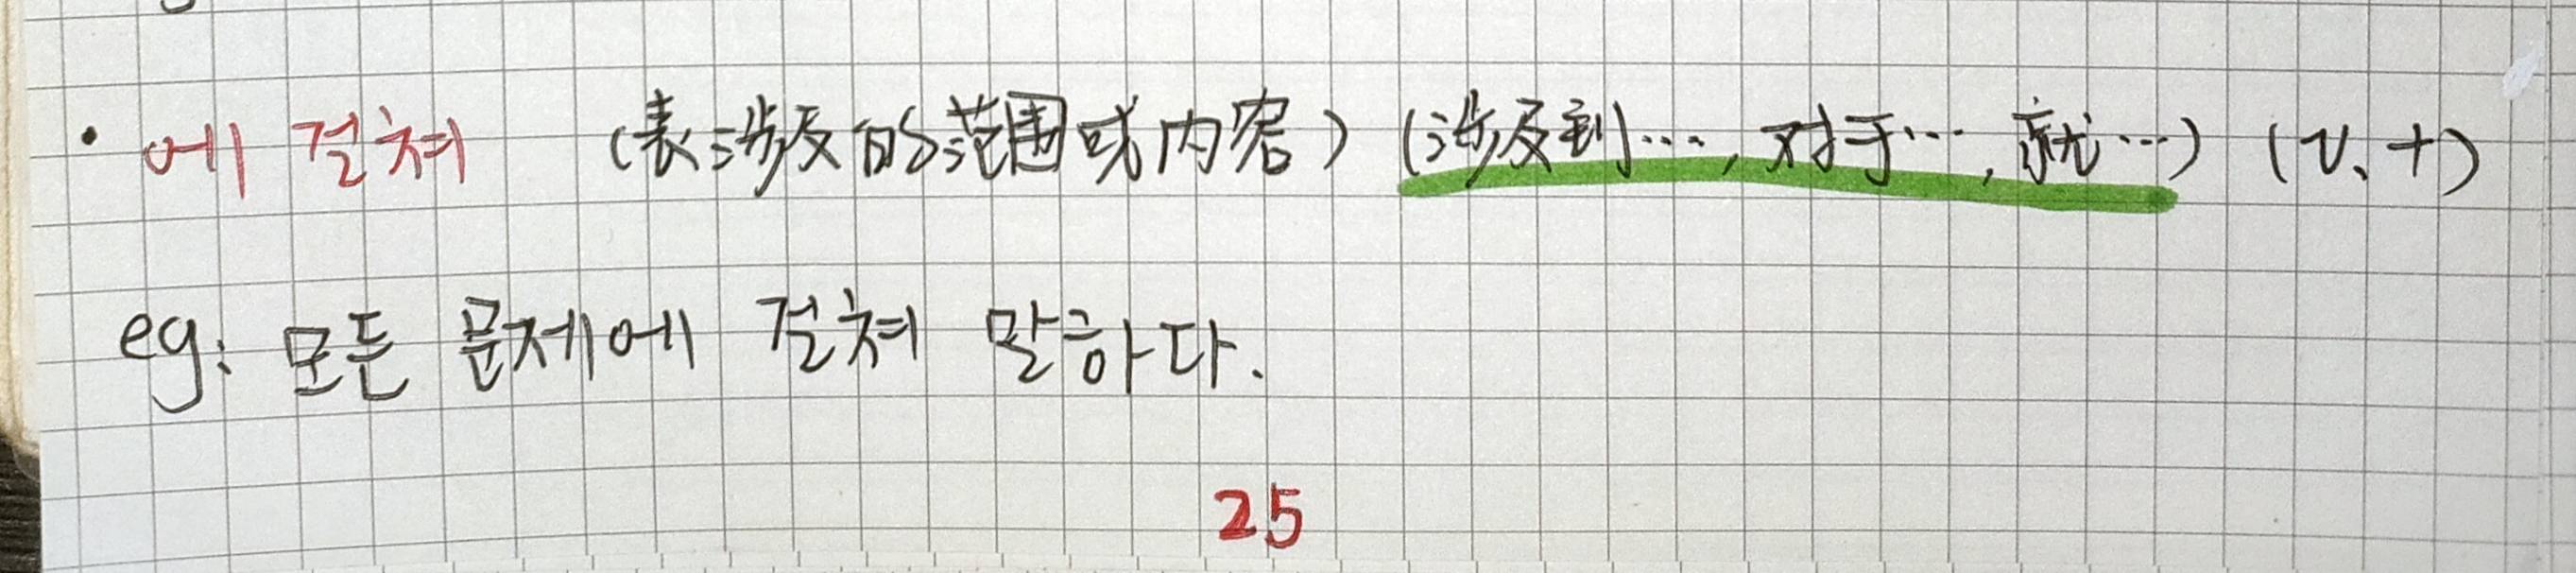 · 에 걸쳐 (表涉及的范围或内容) (涉及到…, 对于…, 就…) (v. +)
eg: 모든 문제에 걸쳐 말하다.
25